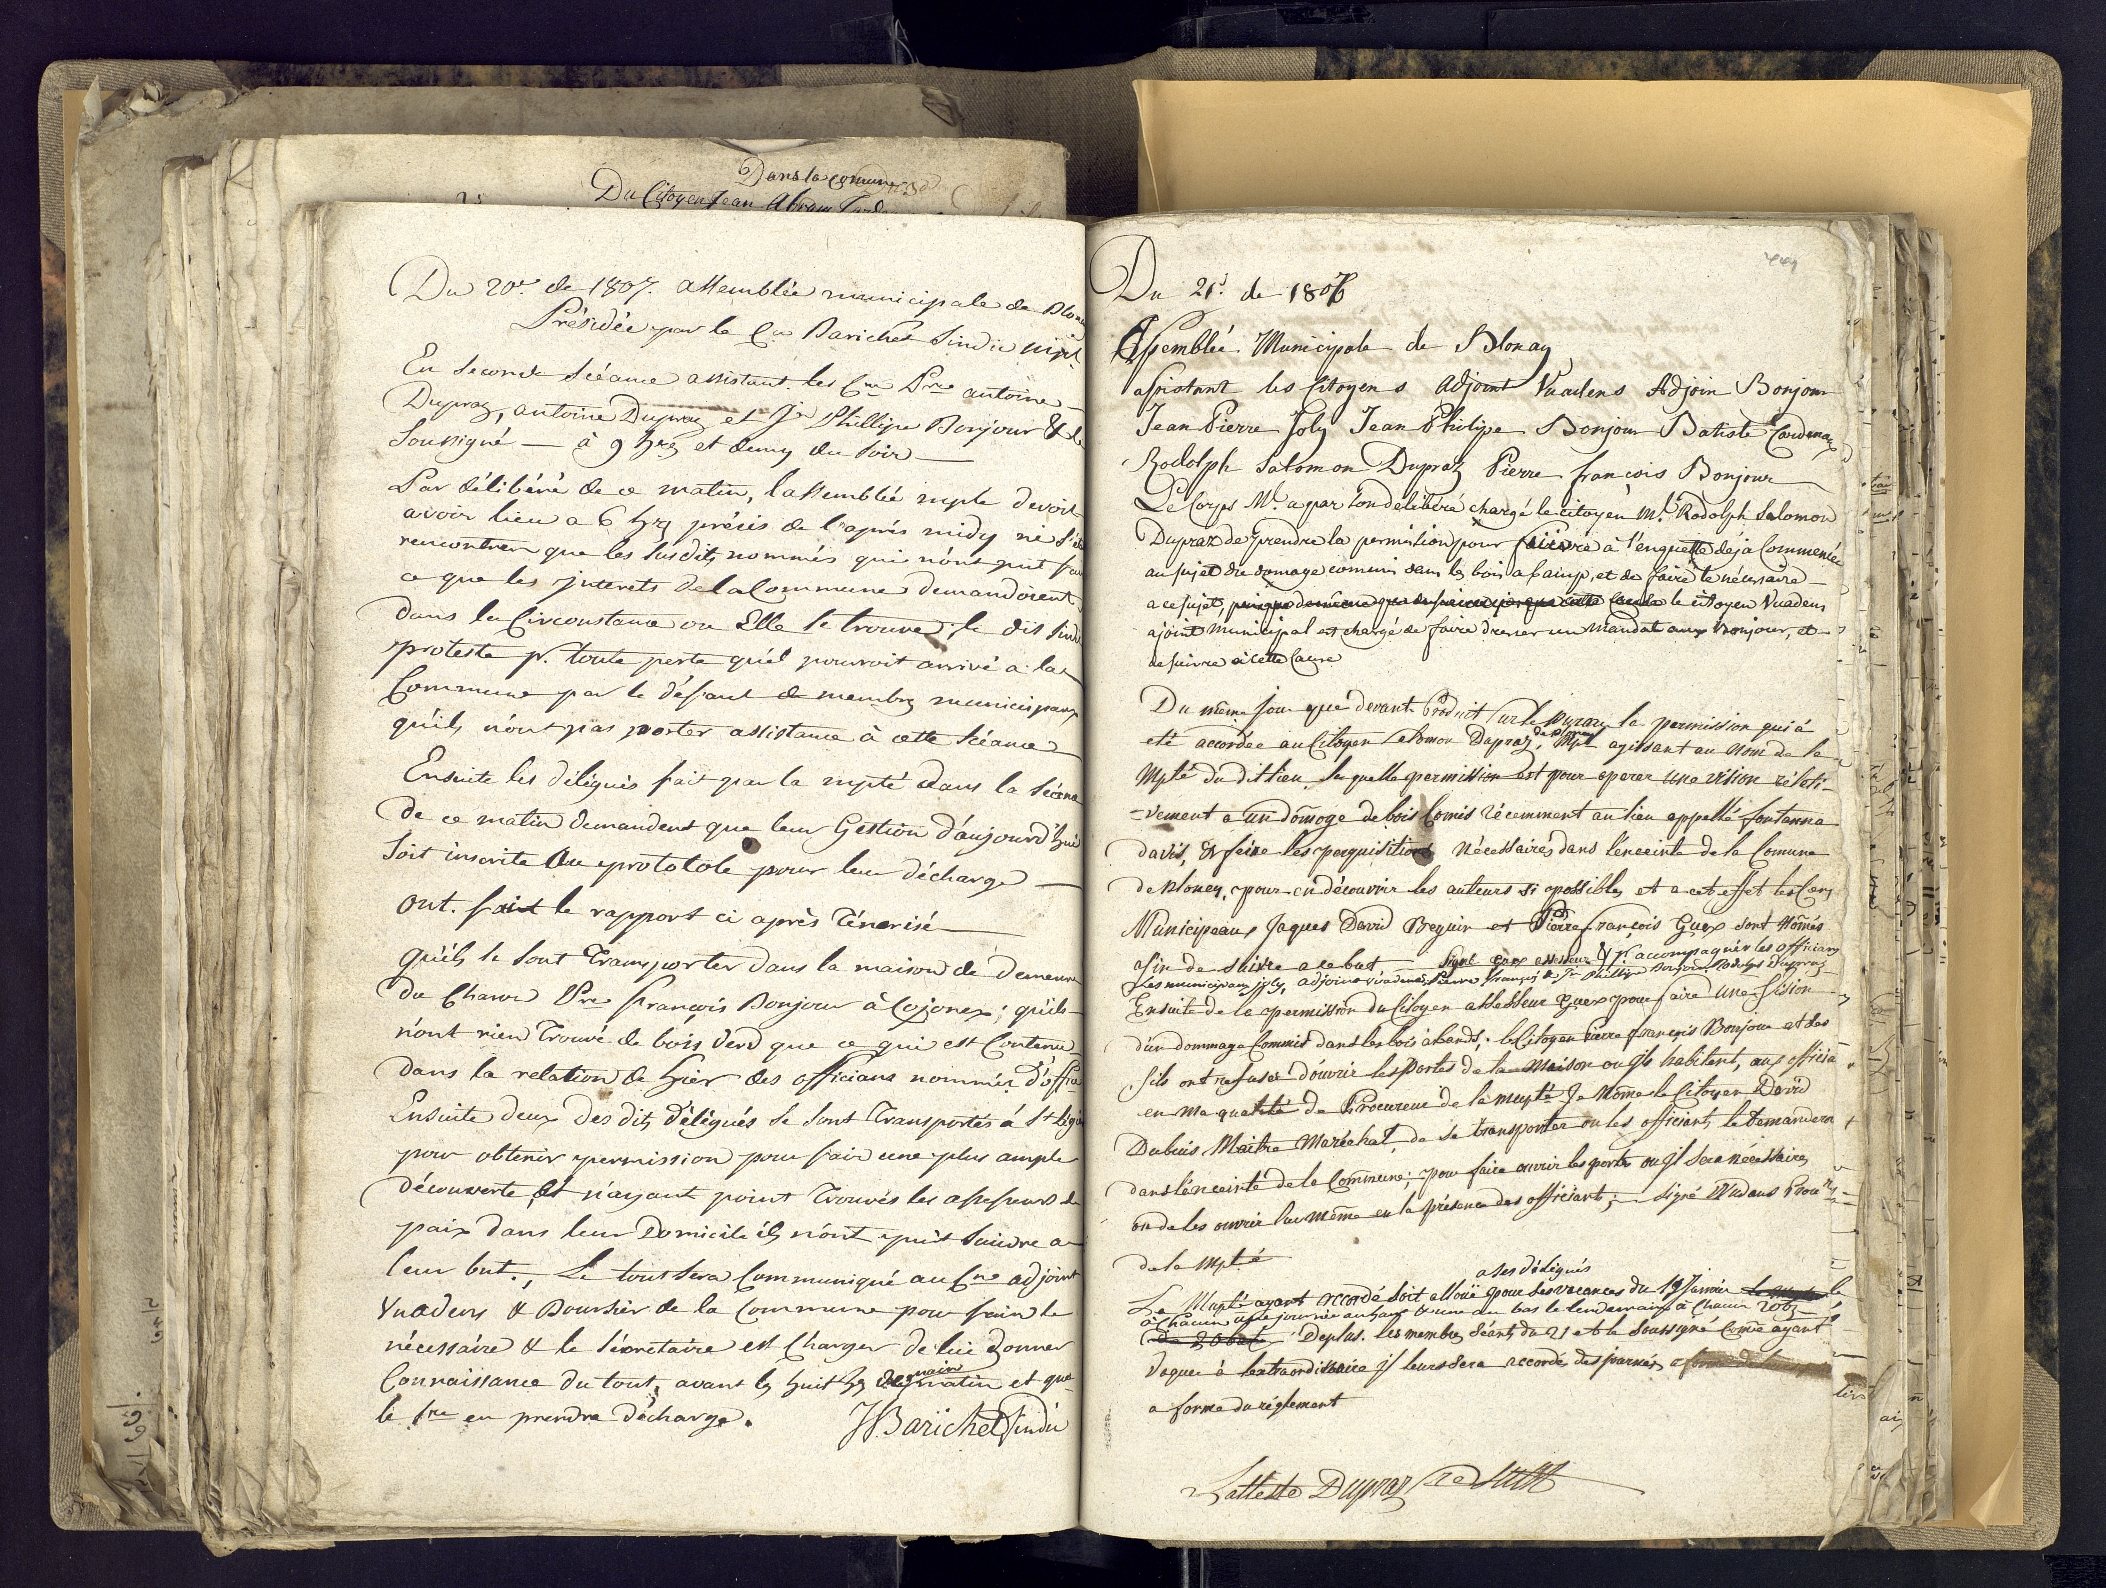 Dans la comune
Du Citoyen Jean Abram
Du 20e. de 1807. assemblée municipale de Blonay
Présidée par le Cn Barichet Sindic
En Seconde Séance assistant les Cns Pre antoine
Dupraz, antoine Dupraz et Jn Phillipe Bonjour & le
Soussigné — à 9 hrs et demy du Soir —
Par délibéré de ce matin, l'assemblée mple devoit
avoir lieu a 6 hrs précis de l'aprés midy ne s'
rencontren que les susdits nommés qui n'ont put
ce que les jnterets de la Commune demandoient
dans la Circonstance ou Elle se trouve; le dit
proteste pr. toute perte quél pourroit arrivé a la
Commune par le défaut de membres municipaux
qu'ils n'ont pas porter assistance à cette Séance
Ensuite les délégués fait par la mpté dans la Séance
de ce matin demandent que leur Gestion d'aujourd'hui
Soit inscrite Au protokole pour leur décharge —
ont. fait le rapport ci aprés Ténorisé —
qu'ils se sont Transporter dans la maison de demeure
du Pre François Bonjour à Cojonex; qu'ils
n'ont rien Trouvé de bois verd que ce qui est Contenu
dans la relation de hier des officians nommés d'
Ensuite deux des dits délégués se sont Transportés á St
pour obtenir permission pour fair une plus ample
découverte, et n'ayant point Trouvés les assesseurs de
paix dans leur Domicile ils n'ont put Suivre a
leur but., Le tout sera Communiqué au Cne adjoint
Vuadens & Boursier de la Commune pour faire le
nécessaire & le Sécretaire est Charger de lui donner
Connaissance du tout, avant les huit hrs demain matin et que
le Sre en prendra décharge.
JBarichet Sindic
Du 21e. de 1807
Assemblée Municipale de Blonay
assistant les Citoyens Adjoint Vuadens Adjoin Bonjour
Jean Pierre Joly Jean Philipe Bonjour Batiste Cardinaux
Rodolph Salomon Dupraz Pierre françois Bonjour
Le Corps Ml. a par son deliberé chargé le citoyen Ml. Rodolph Salomon
Dupraz de prendre la permition pour suivre à l'enquette déjà Commencée
au sujet du domage comeni dans les bois a , et de faire le nécessaire
a ce sujet, le citoyen Vuadens
ajoint Municipal est chargé de faire dresser un mandat aux Bonjour, et
de suivre a cette Cause
Du même jour que devant Produit sur le Bureau la permission qui à
eté accordée au Citoyen Salomon Dupraz, Mpl agissant au Nom de la
Mpté du dit lieu, laquelle permission est pour operer une vision relati-
-vement a un domage de bois Comis récemment au lieu appellé fontanna
davis, & faire les perquisitions Nécessaires dans l'enceinte de la Comune
de Blonay, pour en découvrir les auteurs si possible, et a cet effet les Cens
Municipeaux Jaques David Beguin et Pierre François Guex Sont Només
afin de suivre a ce but — Signé Guex assesseur & pr. accompagner les officians
Les municipaux joly, adjoint Vuadens, Pierre françois & Jn Phillipe Bonjour Rodolph Dupraz
Ensuite de la permission du Citoyen assesseur Guex pour faire une fision
d'un dommage Commis dans les bois à bands,. le Citoyen Pierre François Bonjour et Ses
fils ont refuser d'ouvrir les Portes de la Maison ou Ils habitent, aux officia
en Ma qualité de Procureur de la mupté Je Nome le Citoyen David
Dubuis Maitre Maréchal, de se transporter ou les officiants le Demandera
dans l'enceinte de la Commune; pour faire ouvrir les portes ou Il sera nécessaire,
ou de les ouvrir lui même en la présence des officiants; — Signé Vudens Procr
de la Mpté
a ses délégués
La Mupté ayant accordé soit alloué pour ses vacances du 19 Janvier le
à Chacun une journée au haut & une au bas le lendemain à Chacun 20bz
de 20 batz Deplus. les membres Séants du 21 et le Soussigné Come ayant
Vaquer à lextraordinaire jl leur sera accordé des jornées
a forme du réglement
L'atteste Dupraz